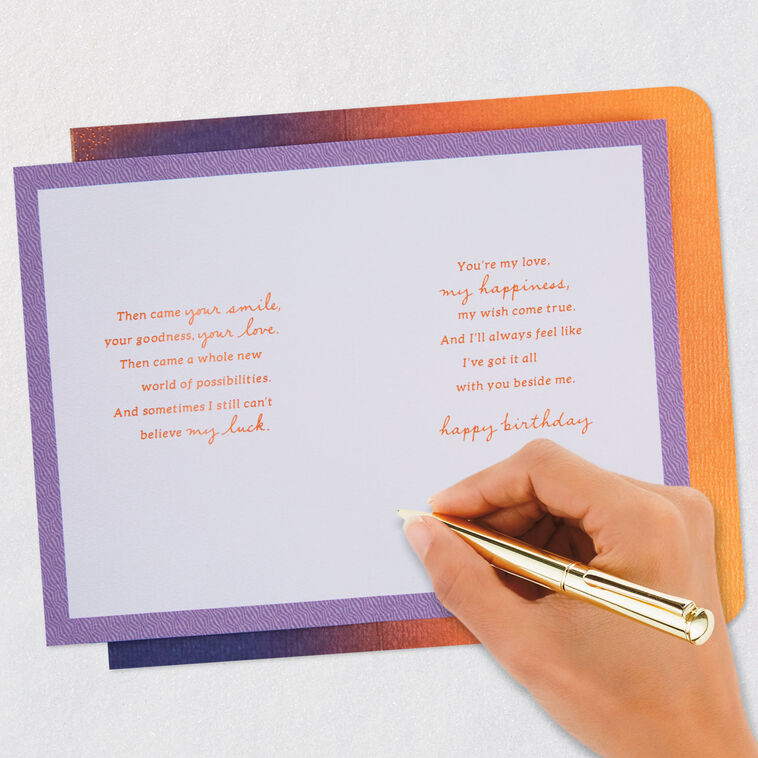 Then came your smile,
your goodness, your love.
Then came a whole new
world of possibilities.
And sometimes I still can't
believe my luck.
You're my love,
my happiness,
my wish come true.
And I'll always feel like
I've got it all
with you beside me.
happy birthday